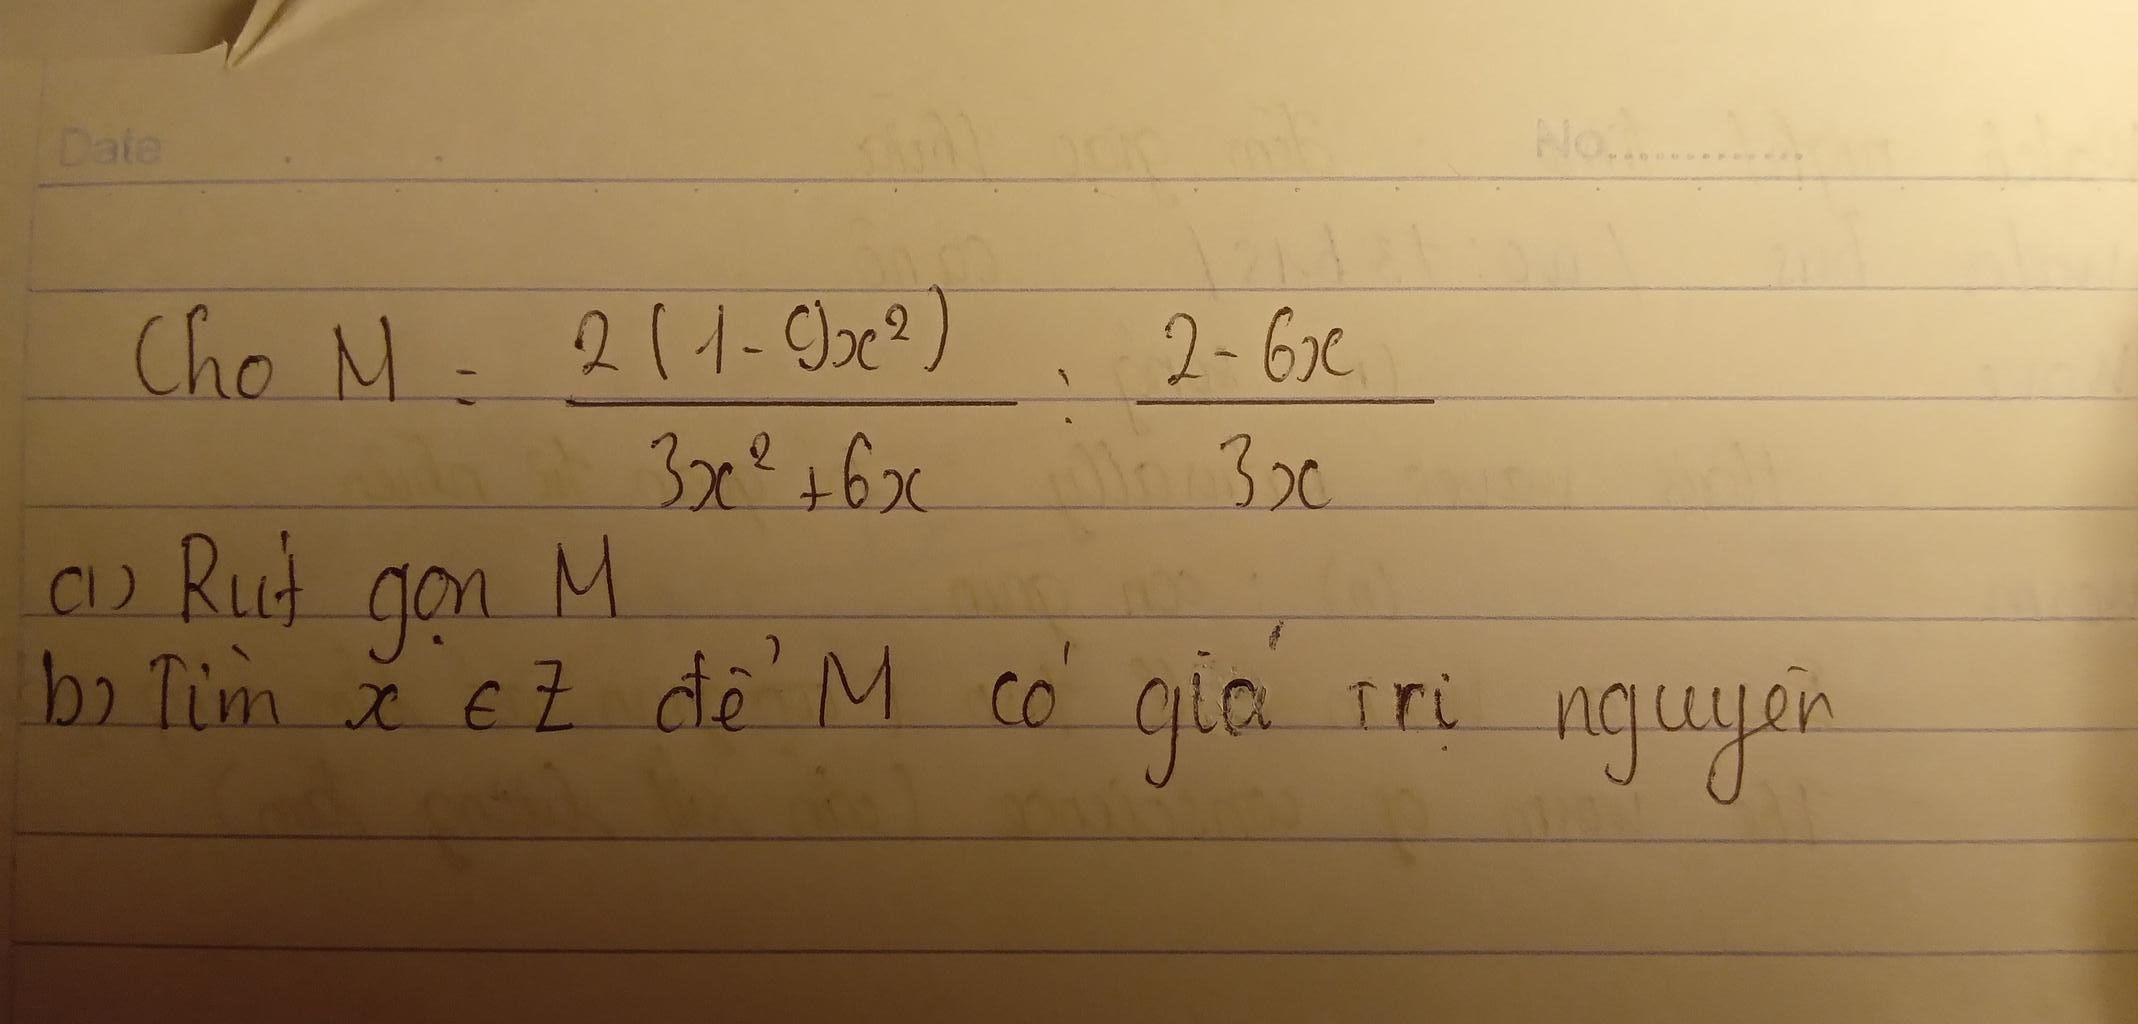 Date No..............
Cho M = \frac{2(1-9x²)}{3x²+6x} : \frac{2-6x}{3x}
a) Rút gọn M
b) Tìm x ∈ Z để M có giá trị nguyên